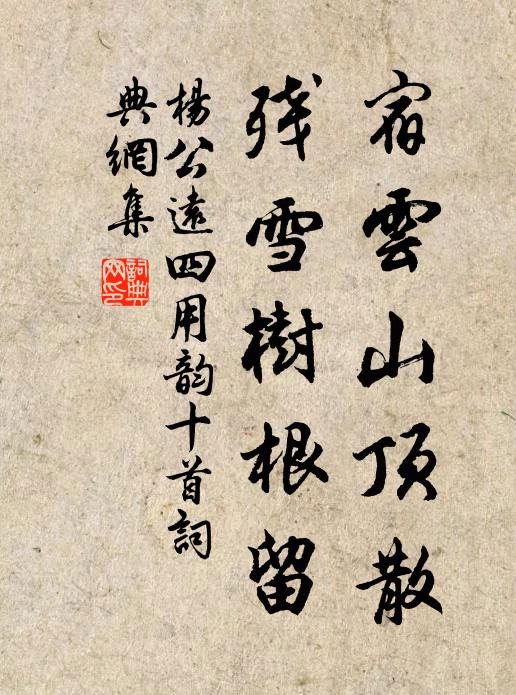 宿雲山頂散
残雪樹根留
楊公遠四用韵十首詞
典網集
詞典
网印